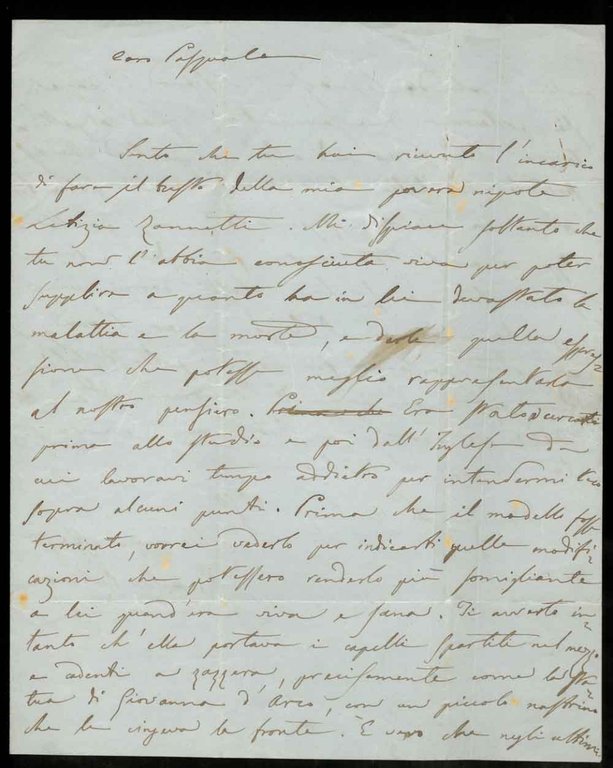 Caro Pasquale
Sento che tu hai ricevuto l'incarico
di fare il busto della mia povera nipote
Letizia Zannetti. Mi dispiace soltanto che
tu non l'abbia conosciuta viva per poter
supplire a quanto ha in lei devastato la
malattia e la morte, e darle quella espres=
sione che potesse meglio rappresentarla
al nostro pensiero. Era stato a cercarti
prima allo studio e poi dall'Inglese da
cui lavoravi tempo addietro per intendermi teco
sopra alcuni punti. Prima che il modello fosse
terminato, vorrei vederlo per indicarti quelle modifi=
cazioni che potessero renderlo più somigliante
a lei quand'era viva e sana. Ti avverto in=
tanto ch'ella portava i capelli spartiti nel mezzo
e adenti a zazzera, precisamente come la sta=
tua di Giovanna d'Arco, con un piccolo nastrino
che le cingeva la fronte. È vero che negli ultimi